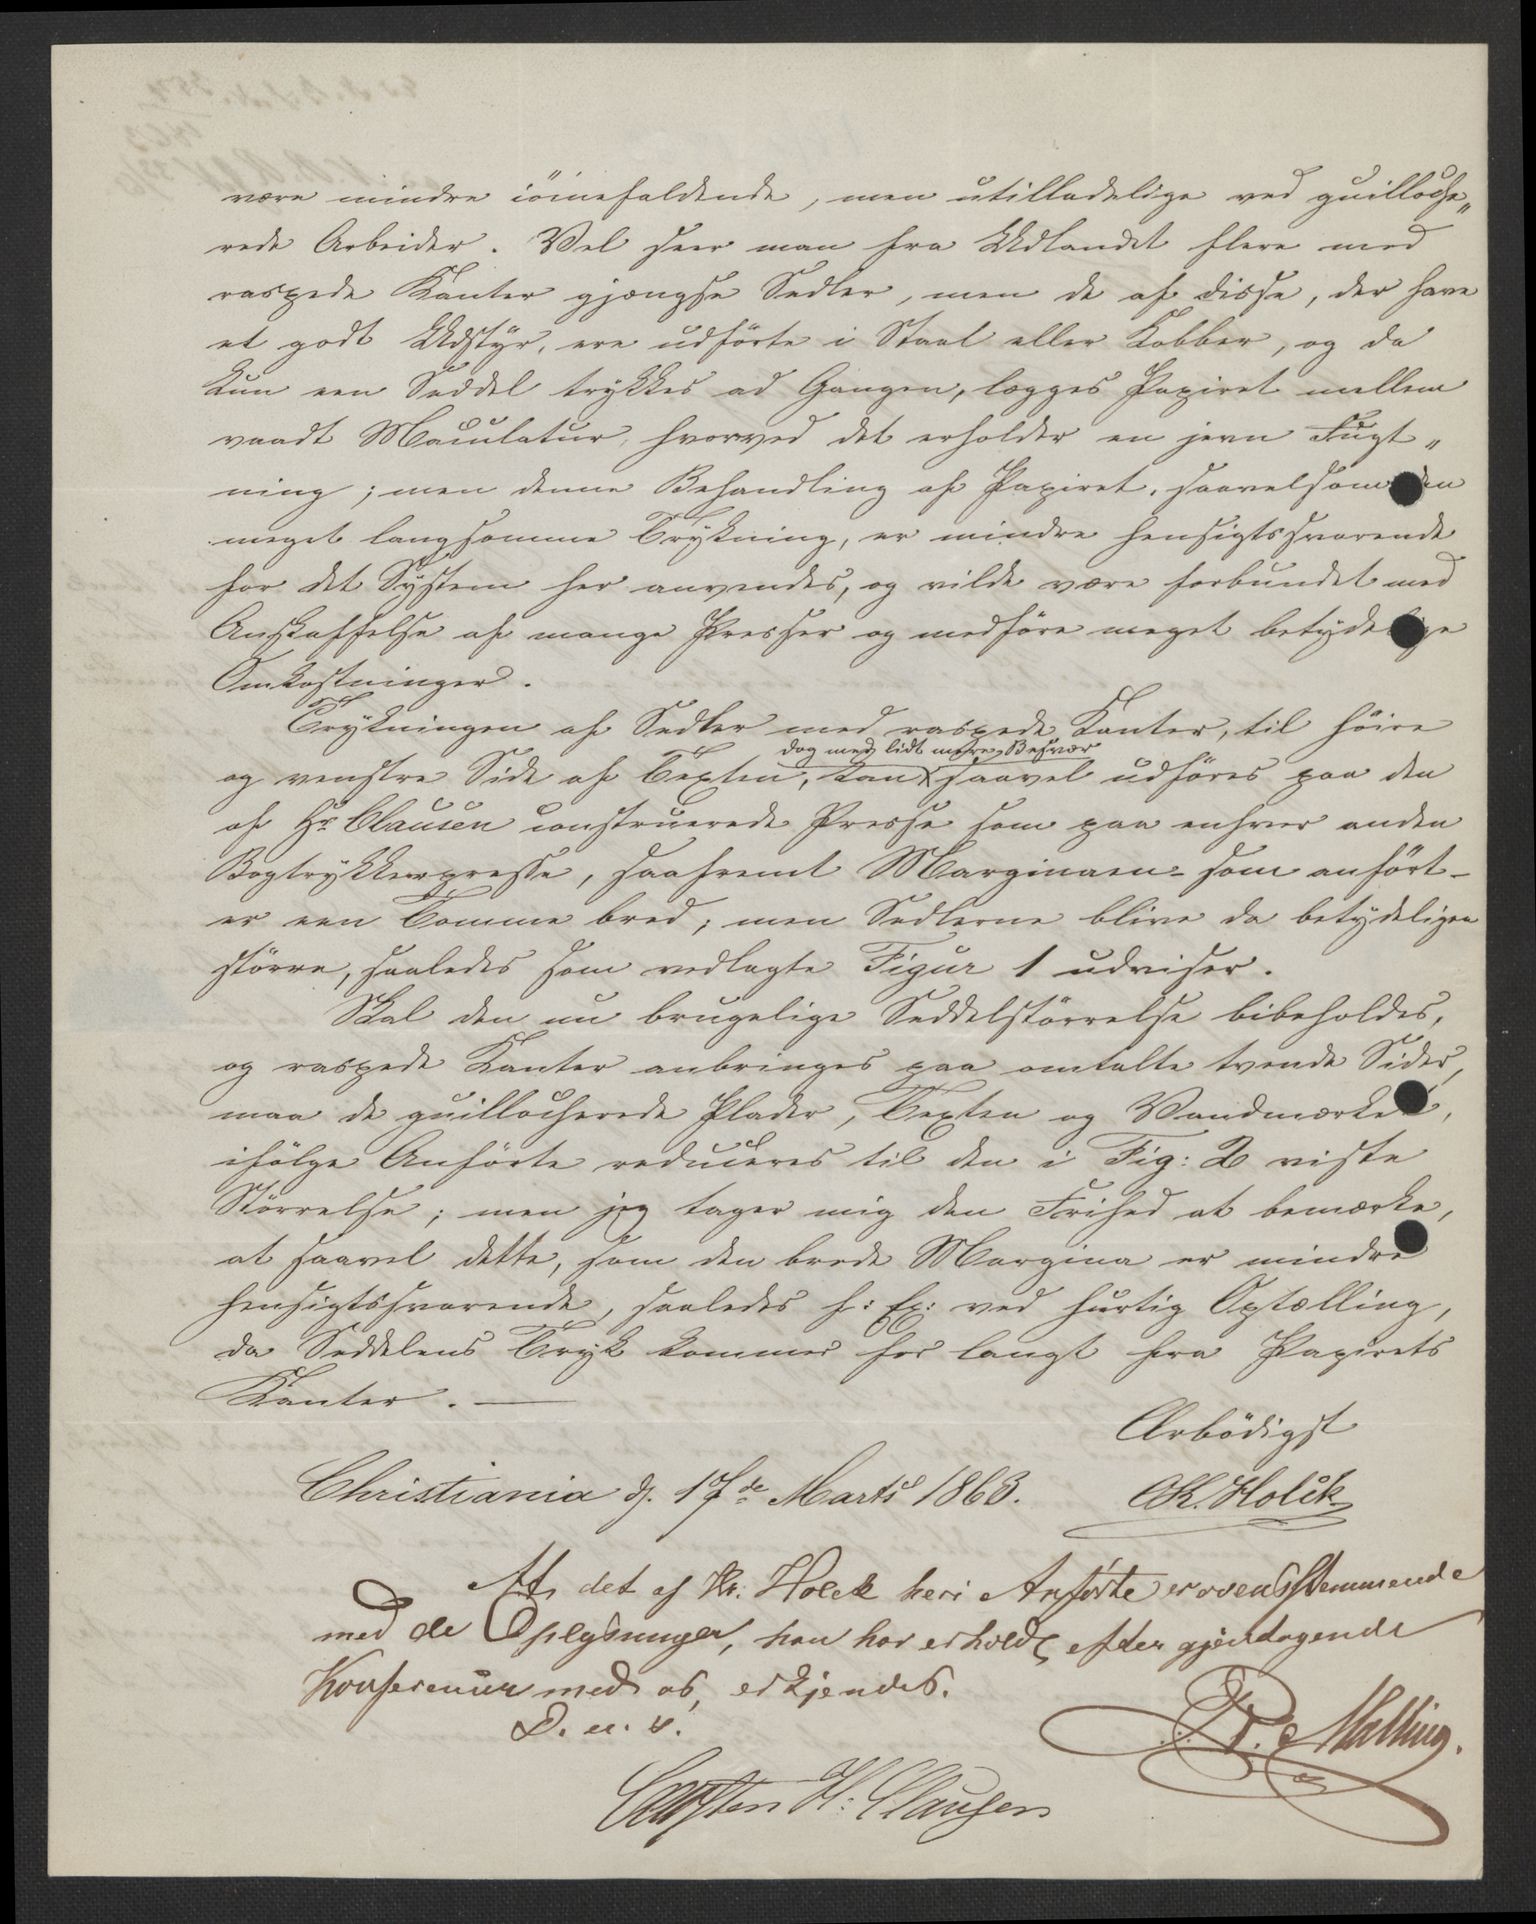 være mindre iöinefaldende, men utilladelige ved guilloche„
rede Arbeider. Vel seer man fra Udlandet flere med
raspede Kanter gjængse Sedler, men de af disse, der have
et godt Udstyr, ere udförte i Staal eller Kobber, og da
kun een Seddel trykkes ad Gangen, lægges Papiret mellem
vaadt Maculatur, hvorved det erholder en jevn Fugt„
ning; men denne Behandling af Papiret, saavelsom den
meget langsomme Trykning, er mindre hensigtssvarende
for det System her anvendes, og vilde være forbundet med
Anskaffelse af mange Presser og medföre meget betydelige
Omkostninger.
Trykningen af Sedler med raspede Kanter, til höire
dog med lidt mere Besvær
og venstre Side af Texten, kan saavel udföres paa den
af Hr Clausen construerede Presse som paa enhver anden
Bogtrykkerpresse, saafremt Marginaen - som anfört -
er een Tomme bred; men Sedlerne blive da betydeligen
större, saaledes som vedlagte Figur 1 udviser.
Skal den nu brugelige Seddelstörrelse bibeholdes,
og raspede Kanter anbringes paa omtalte tvende Sider,
maa de guillocherede Plader, Texten og Vandmærket,
ifölge Anförte reduceres til den i Fig: 2 viste
Störrelse; men jeg tager mig den Frihed at bemærke,
at saavel dette, som den brede Margina er mindre
hensigtssvarende, saaledes f: Ex: ved hurtig Optælling,
da Seddelens Tryk kommer for langt fra Papirets
Kanter. —
Ærbödigst
Christiania d. 17de Marts 1863. Chr. Holck
At det af Hr. Holck heri Anförte er overensstemmende
med de Oplysninger, han har erholdt efter gjentagende
Konferencer med os, erkjendes.
D. u. s.
P. T. Malling.
Carsten H: Clausen